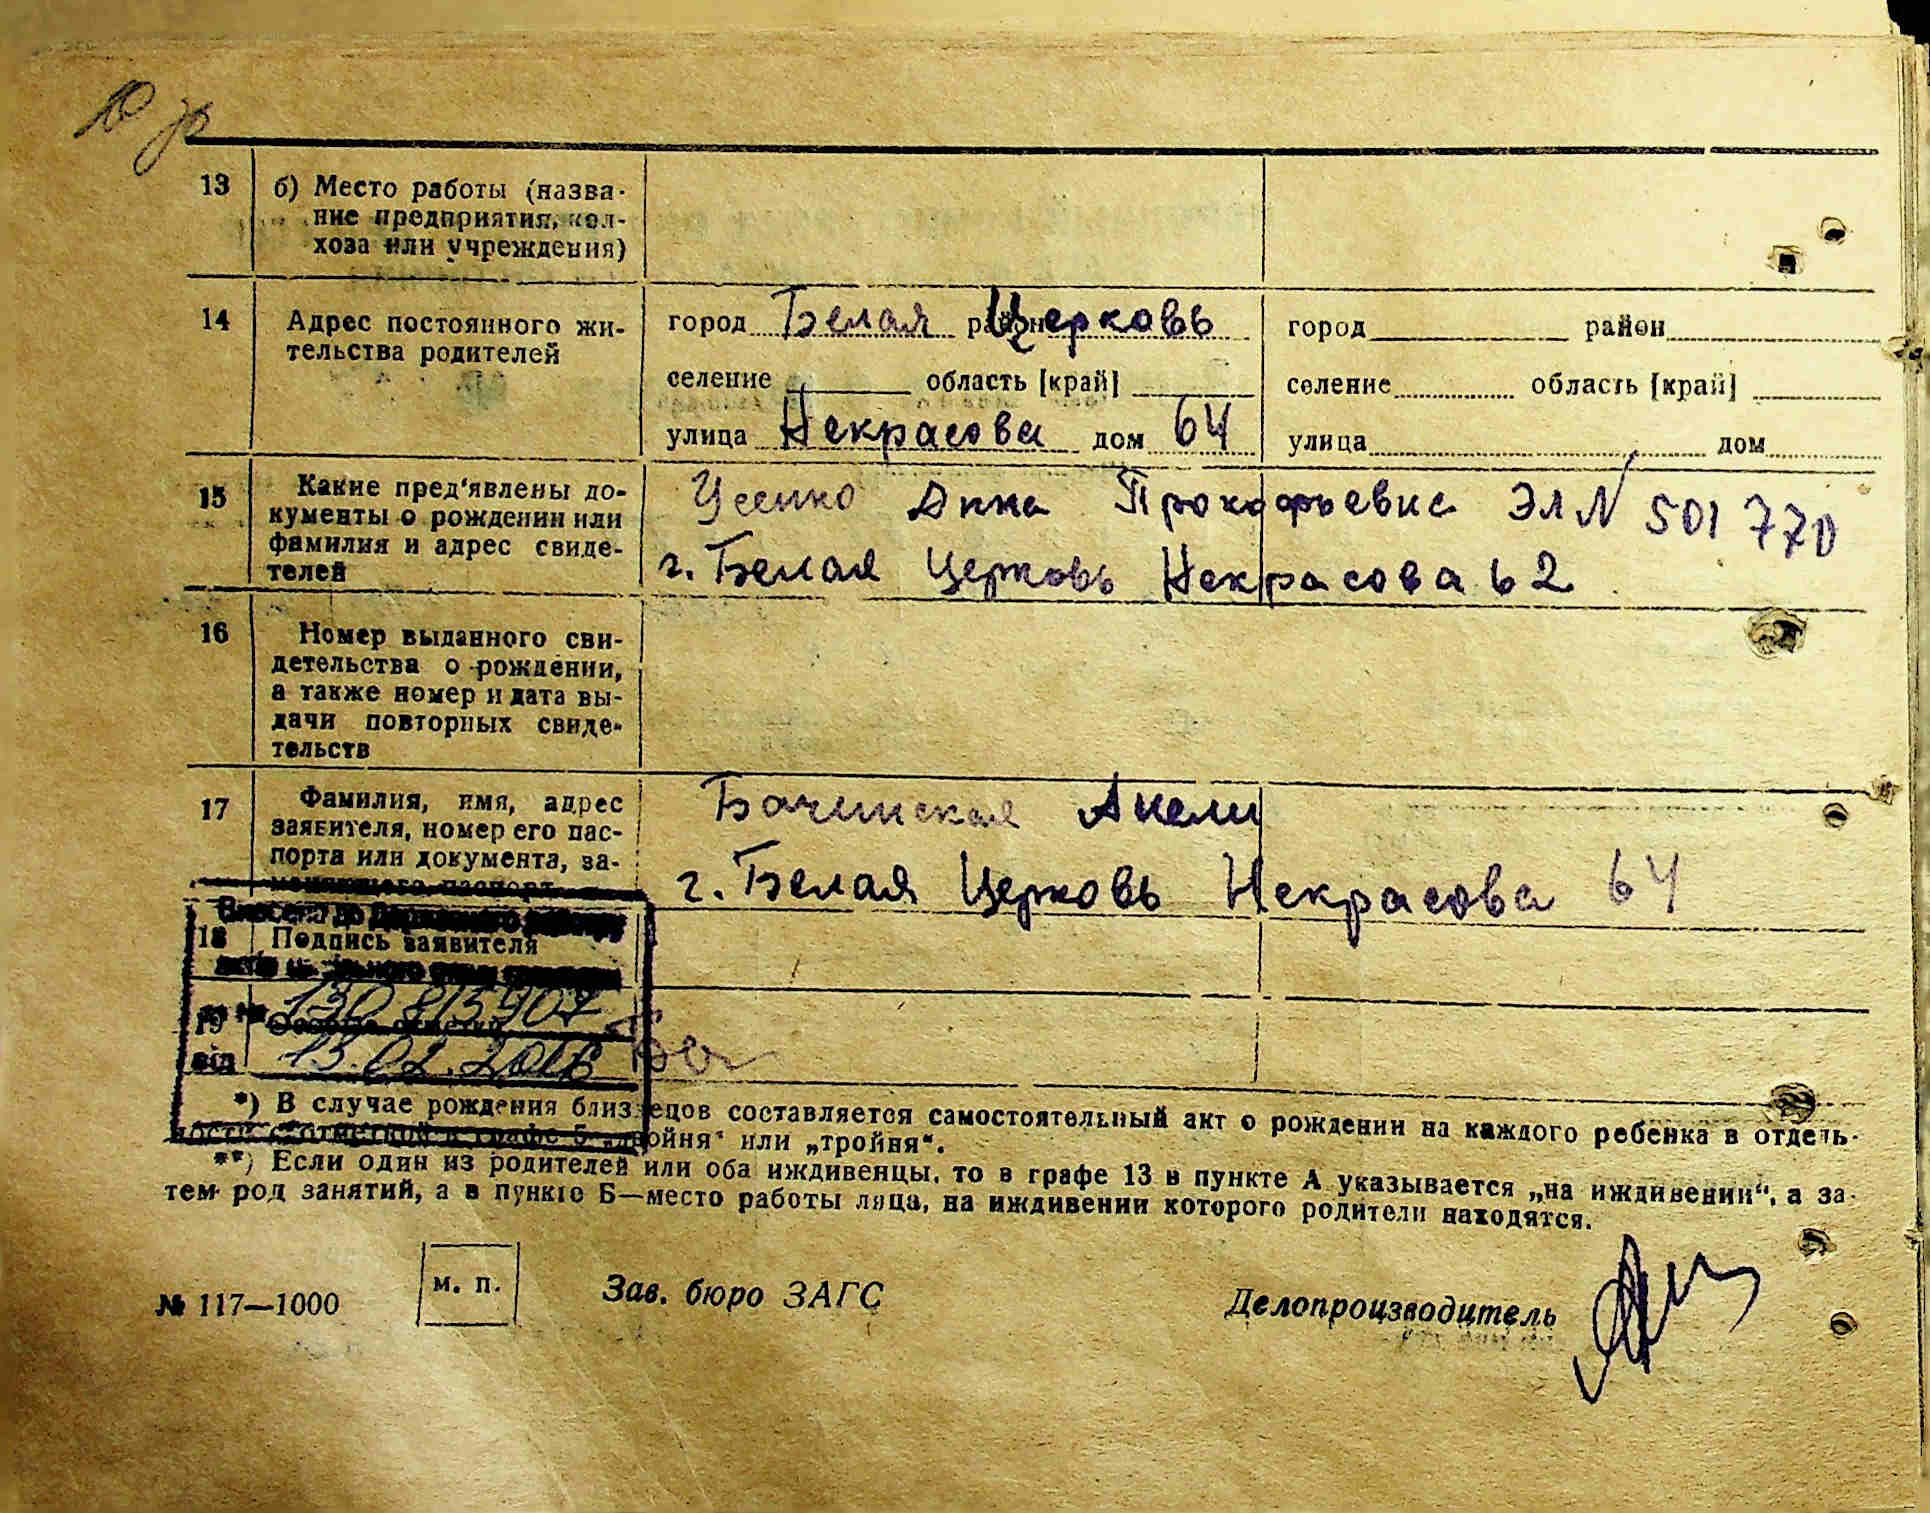 13 б) Место работы (назва-
ние предприятия, кол-
хоза или учреждения)
14 Адрес постоянного жи-
тельства родителей
город Белая район Церковь
селение область [край]
улица Некрасова дом 64
город район
селение область [край]
улица дом
15 Какие пред'явлены до-
кументы о рождении или
фамилия и адрес свиде-
телей
Усенко Анна Прокофьевна ЭЛ N 501770
г. Белая Церковь Некрасова 62
16 Номер выданного сви-
детельства о рождении,
а также номер и дата вы-
дачи повторных свиде-
тельств
17 Фамилия, имя, адрес
заявителя, номер его пас-
порта или документа, за-
меняющего паспорт
Бачинская Анели
г. Белая Церковь Некрасова 64
Внесено до Державного реєстру
18 Подпись заявителя
актів цивільного стану громадян
за № 130 813907
19 Особые отметки
від 13.02.2018
*) В случае рождения близнецов составляется самостоятельный акт о рождении на каждого ребенка в отдель-
ности с отметкой в графе 5 „двойня“ или „тройня“.
**) Если один из родителей или оба иждивенцы, то в графе 13 в пункте А указывается „на иждивении“, а за-
тем род занятий, а в пункте Б—место работы лица, на иждивении которого родители находятся.
№ 117—1000
м. п.
Зав. бюро ЗАГС
Делопроизводитель